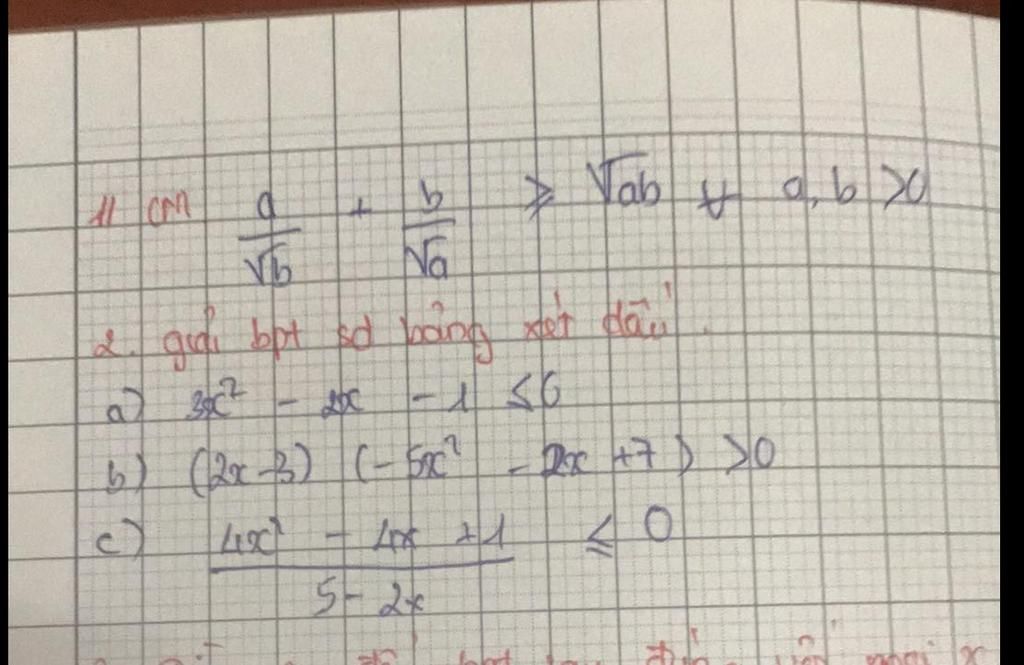 1/ CM a/√b + b/√a ≥ √ab ∀ a, b >0
2. giải bpt sd bảng xét dấu.
a) 3x² - 2x - 1 ≤0
b) (2x-3) (-5x² - 2x +7) >0
c) (4x² - 4x + 1)/(5 - 2x) ≤ 0